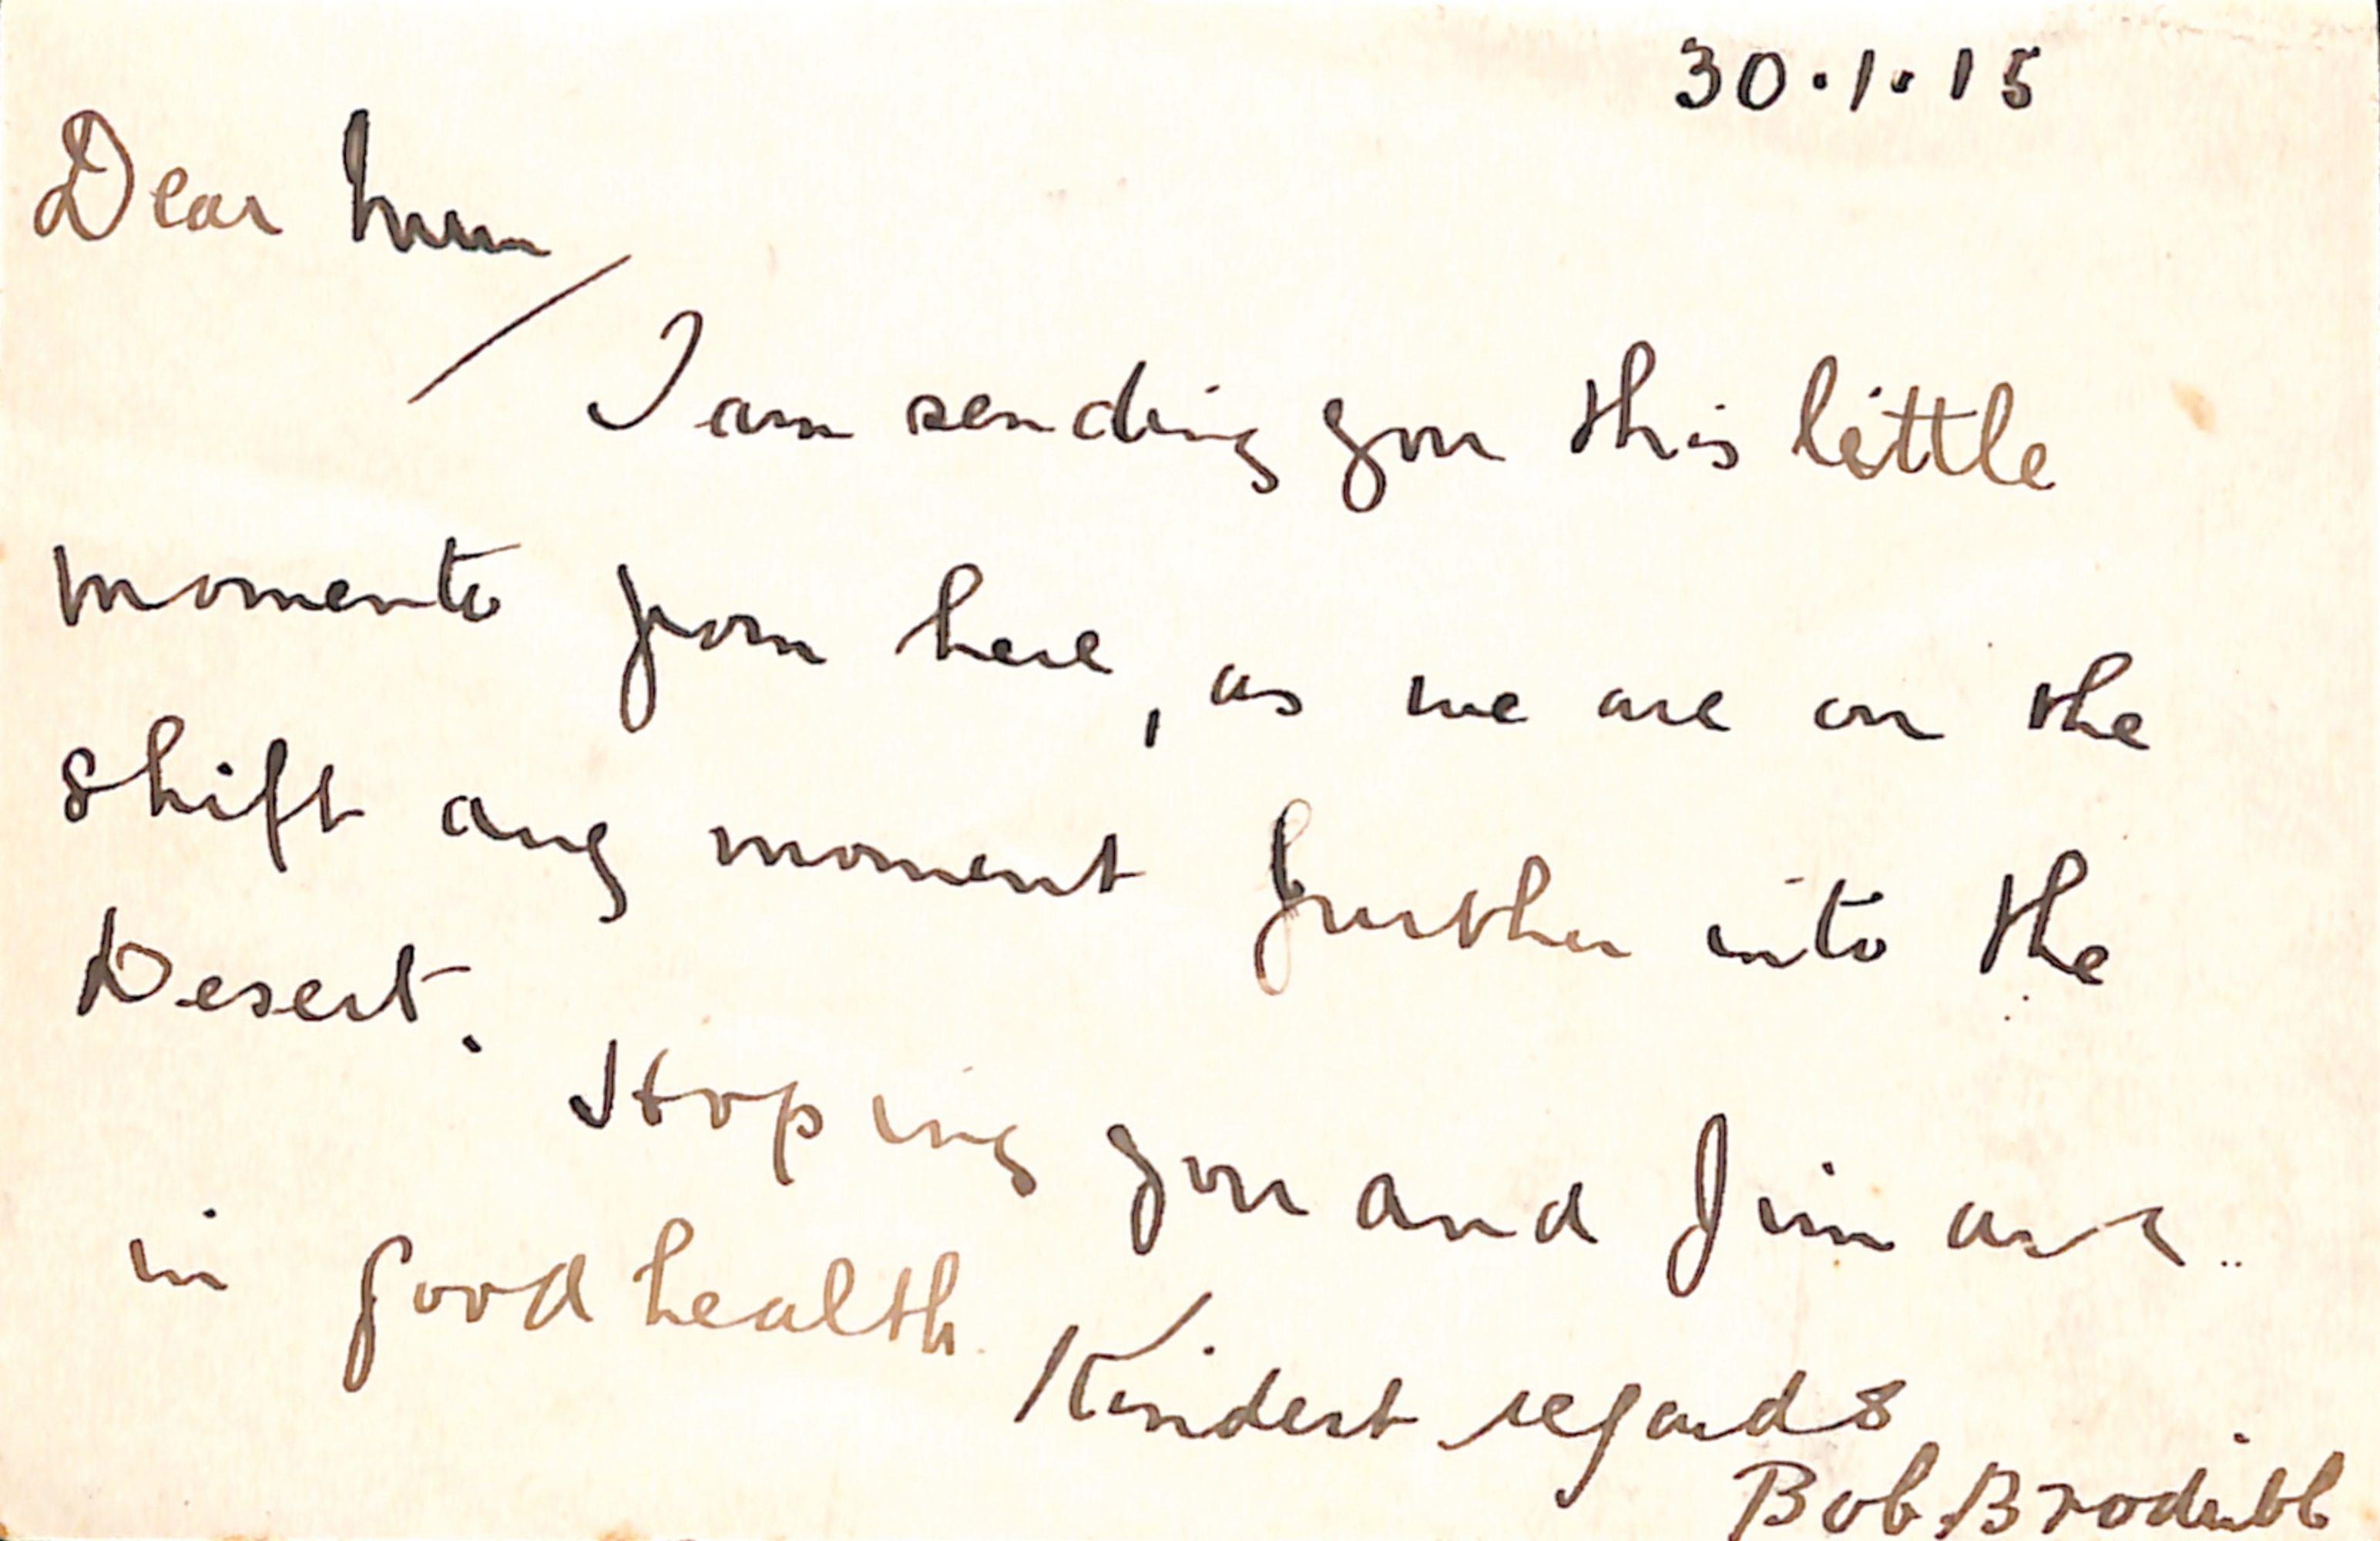 30.1.15
Dear Mum
I am sending you this little
momento from here, as we are on the
shift any moment further into the
Desert. Hoping you and Jim are
in good health.
Kindest regards
Bob